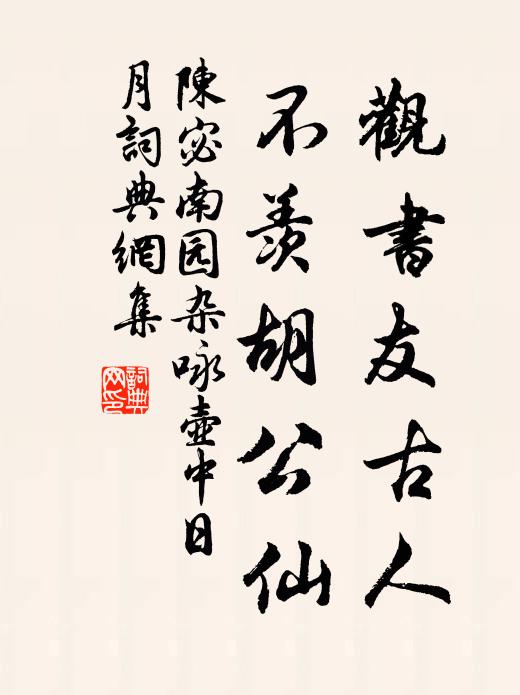 觀書友古人
不羨胡公仙
陳宓南园杂咏壶中日
月詞典網集
詞典
网印